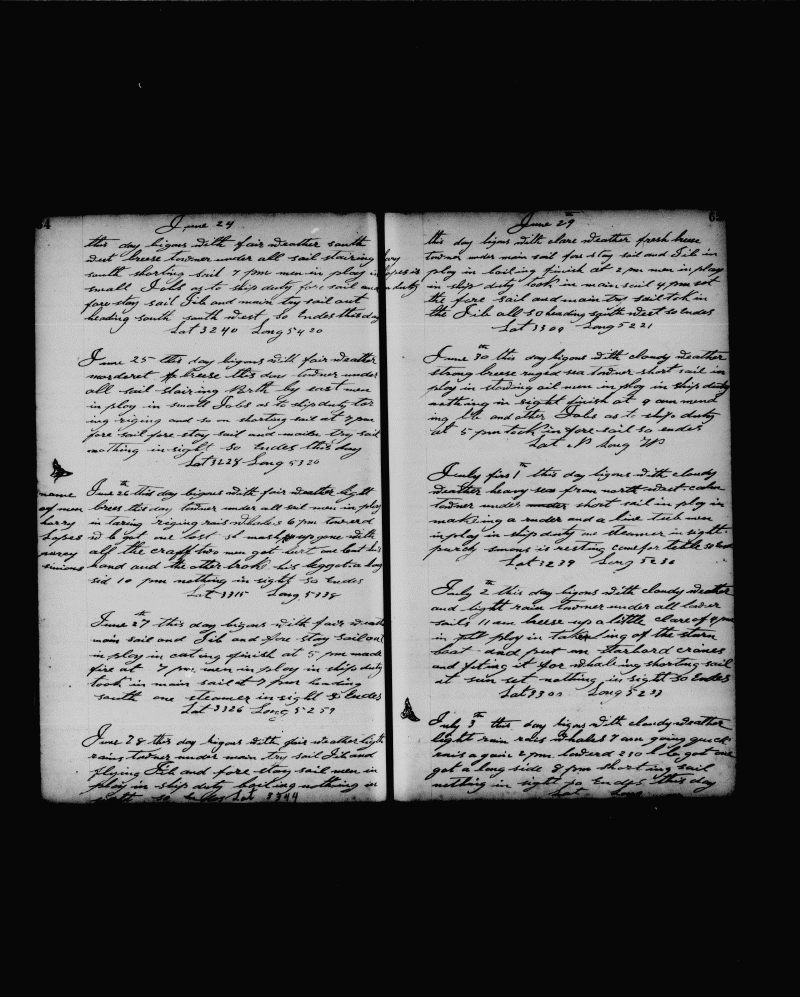 64
June 24
this day bigons with fair weather south
west breese towner under all sail stairing
south shorting sail 7 pm men in ploy in
small Jobs as to ship duty fore sail and
fore stay sail Jib and main try sail out
heading south south west so Endes this day
Lat 3240 Long 5420
June 25 this day bigons with fair weather
morderet breese this day towner under
all sail stairing North by east men
in ploy in small Jobs as to ship duty tar
ing riging and so on shorting sail at 7 pm
fore sail fore stay sail and main try sail
nothing in sight so Endes this day
Lat 3228 Long 5320
name
of men
harry
lopes
perry
simons
June 26th this day bigons with fair weather light
brees this day towner under all sail men in ploy
in taring riging rais whales 6 pm lowered
all the craft two men got hurt one lost his
hand and the other brok his leg got a long
sid 10 pm nothing in sight so Endes
Lat 3315 Long 5338
June 27th this day bigons with fair weath
main sail and Jib and fore stay sail out
in ploy in cating finish at 5 pm made
fire at 7 pm men in ploy in ship duty
took in main sail at 7 pm heading
south one steamer in sight so Endes
Lat 3326 Long 5259
June 28 this day bigons with fair weather light
rains towner under main try sail Jib and
flying Jib and fore stay sail men in
ploy in ship duty boiling nothing in
so Endes Lat 3344
June 29th
this day bigons with clare weather fresh breese
towner under main sail fore stay sail and Jib in
ploy in boiling finish at 2 pm men in ploy
in ship duty took in main sail 4 pm set
the fore sail and main try sail tok in
the Jib all so heading south west so Endes
Lat 3309 Long 5221
June 30th this day bigons with cloudy weather
strong breese ruged sea towner short sail in
ploy in stowing oil men in ploy in ship duty
nothing in sight finish at 9 am mend
ing and other Jobs as to ship duty
at 5 pm took in fore sail so endes
Lat N Long W
July firs 1th this day bigons with cloudy
weather heavy sea from north west calm
towner under short sail in ploy in
making a ruder and a line tub men
in ploy in ship duty one steamer in sight
perdy simons is resting comfor table so End
Lat 3239 Long 5236
July 2 this day bigons with cloudy weather
and light rain towner under all lower
sails 11 am breese up a little clare of 4 pm
in ploy in taking of the starn
boat and put on starbord cranes
and fiting it for whaleing shorting sail
at sun set nothing in sight so Endes
Lat 3300 Long 5233
July 3th this day bigons with cloudy weather
light rain rais whales 7 am going quick
rais a gain 2 pm lowerd 230 got one
got a long side 8 pm shorting sail
nothing in sight so Endes this day
Lat Long